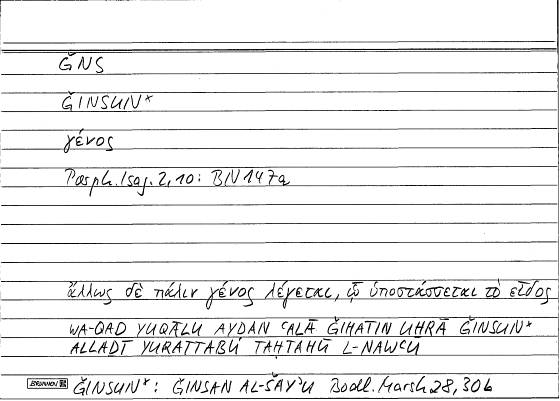 ǦNS
ǦINSUN*
γένος
Porph. Isag. 2,10: BN 147a
ἄλλως δὲ πάλιν γένος λέγεται, ᾧ ὑποτάσσεται τὸ εἶδος
WA-QAD YUQĀLU AYḌAN ʿALĀ ǦIHATIN UḪRĀ ǦINSUN*
ALLAḎĪ YURATTABU TAḤTAHŪ L-NAWʿU
BRUNNEN ǦINSUN*: ǦINSAN AL-ŠAYʾU Bodl. Marsh 28, 30b